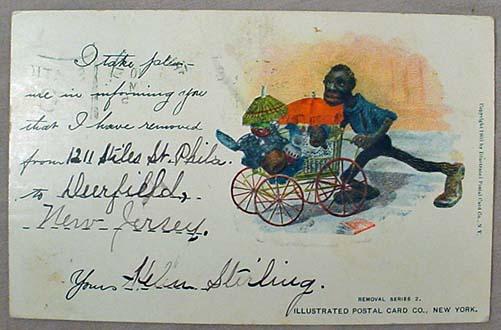 I take pleas-
ure in informing you
that I have removed
from 1211 Stiles St. Phila.
to Deerfield,
New Jersey.
Yours Helen Stirling.
Copyright 1903 by Illustrated Postal Card Co., N.Y.
REMOVAL SERIES 2.
ILLUSTRATED POSTAL CARD CO., NEW YORK.